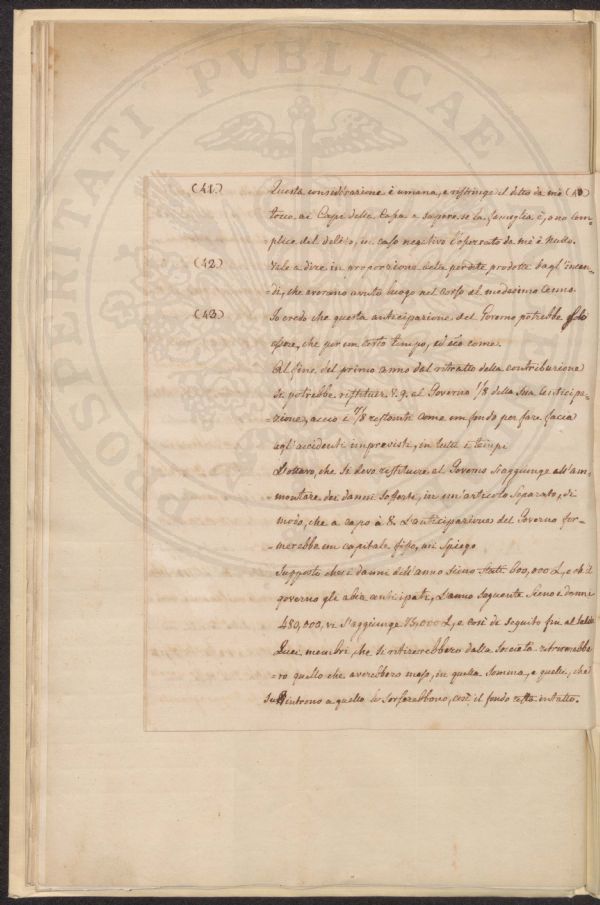 PROSPERITATI PVBLICAE
(41.) Questa considerazione è umana, e ristringe il detto da me (40)
tocca ai Capi della Casa a sapere se la famiglia è, o no com-
-plice del delito, in caso negativo l'operato da mè è Nullo.
(42.) Vale a dire in proporzione delle perdite prodotte dagl'incen-
-di, che averano avuto luogo nel corso del medesimo
(43.) Io credo che questa anticipazione del Governo potrebbe
essere, che per un certo tempo, ed eco come.
Al fine del primo anno dal ritratto della contribuzione
Si potrebbe restituir V. g. al Governo 1/8 della Sua Anticipa-
-zione, acciò i 7/8 restanti come un fondo per fare faccia
agl'accidenti imprevisti, in tutti i tempi
L'ottavo, che si deve restituire al Governo s'aggiunge all'am-
montare dei danni sofferti, in un'articolo Separato, di
modo, che a capo à 8. L'anticipazione del Governo for-
-merebbe un capitale fisso, mi Spiego
Supposto che i danni dell'anno sieno stati 600,000 L, e ch'il
governo gli abia anticipati, L'anno seguente Sieno i danni
480,000, vi s'aggiunge 75,000 L, e così di seguito fin al
Quei membri, che si ritirerebbero dalla Società ritroverebbe-
-ro quello che averebbero messo, in quella Somma, e quelli, che
entrono a quello, così il fondo resta intatto.